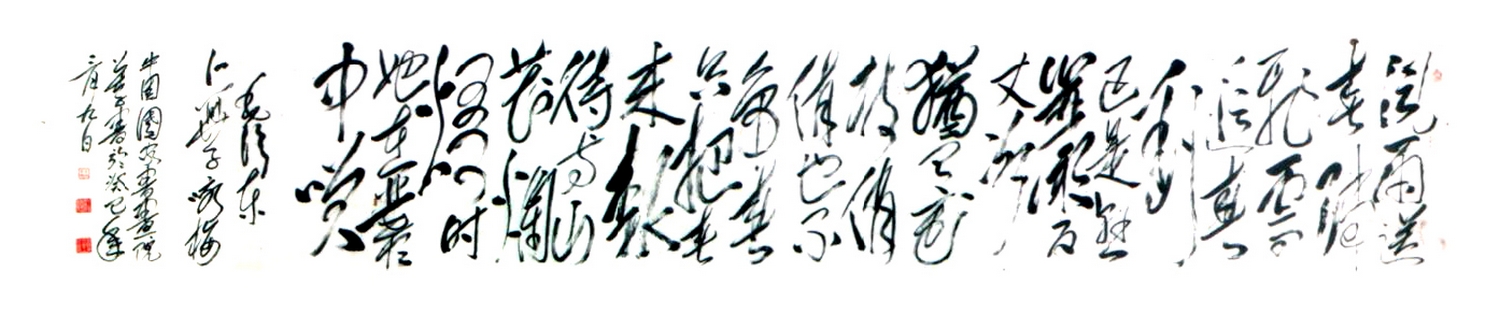 风雨送
春归
飞雪
迎春
到
已是悬
崖百
丈冰
犹有花
枝俏
俏也不
争春
只把春
来报
待到山
花烂
熳时
她在丛
中笑
毛泽东
卜算子咏梅
中国国家书画院
书于癸巳年
三月九日